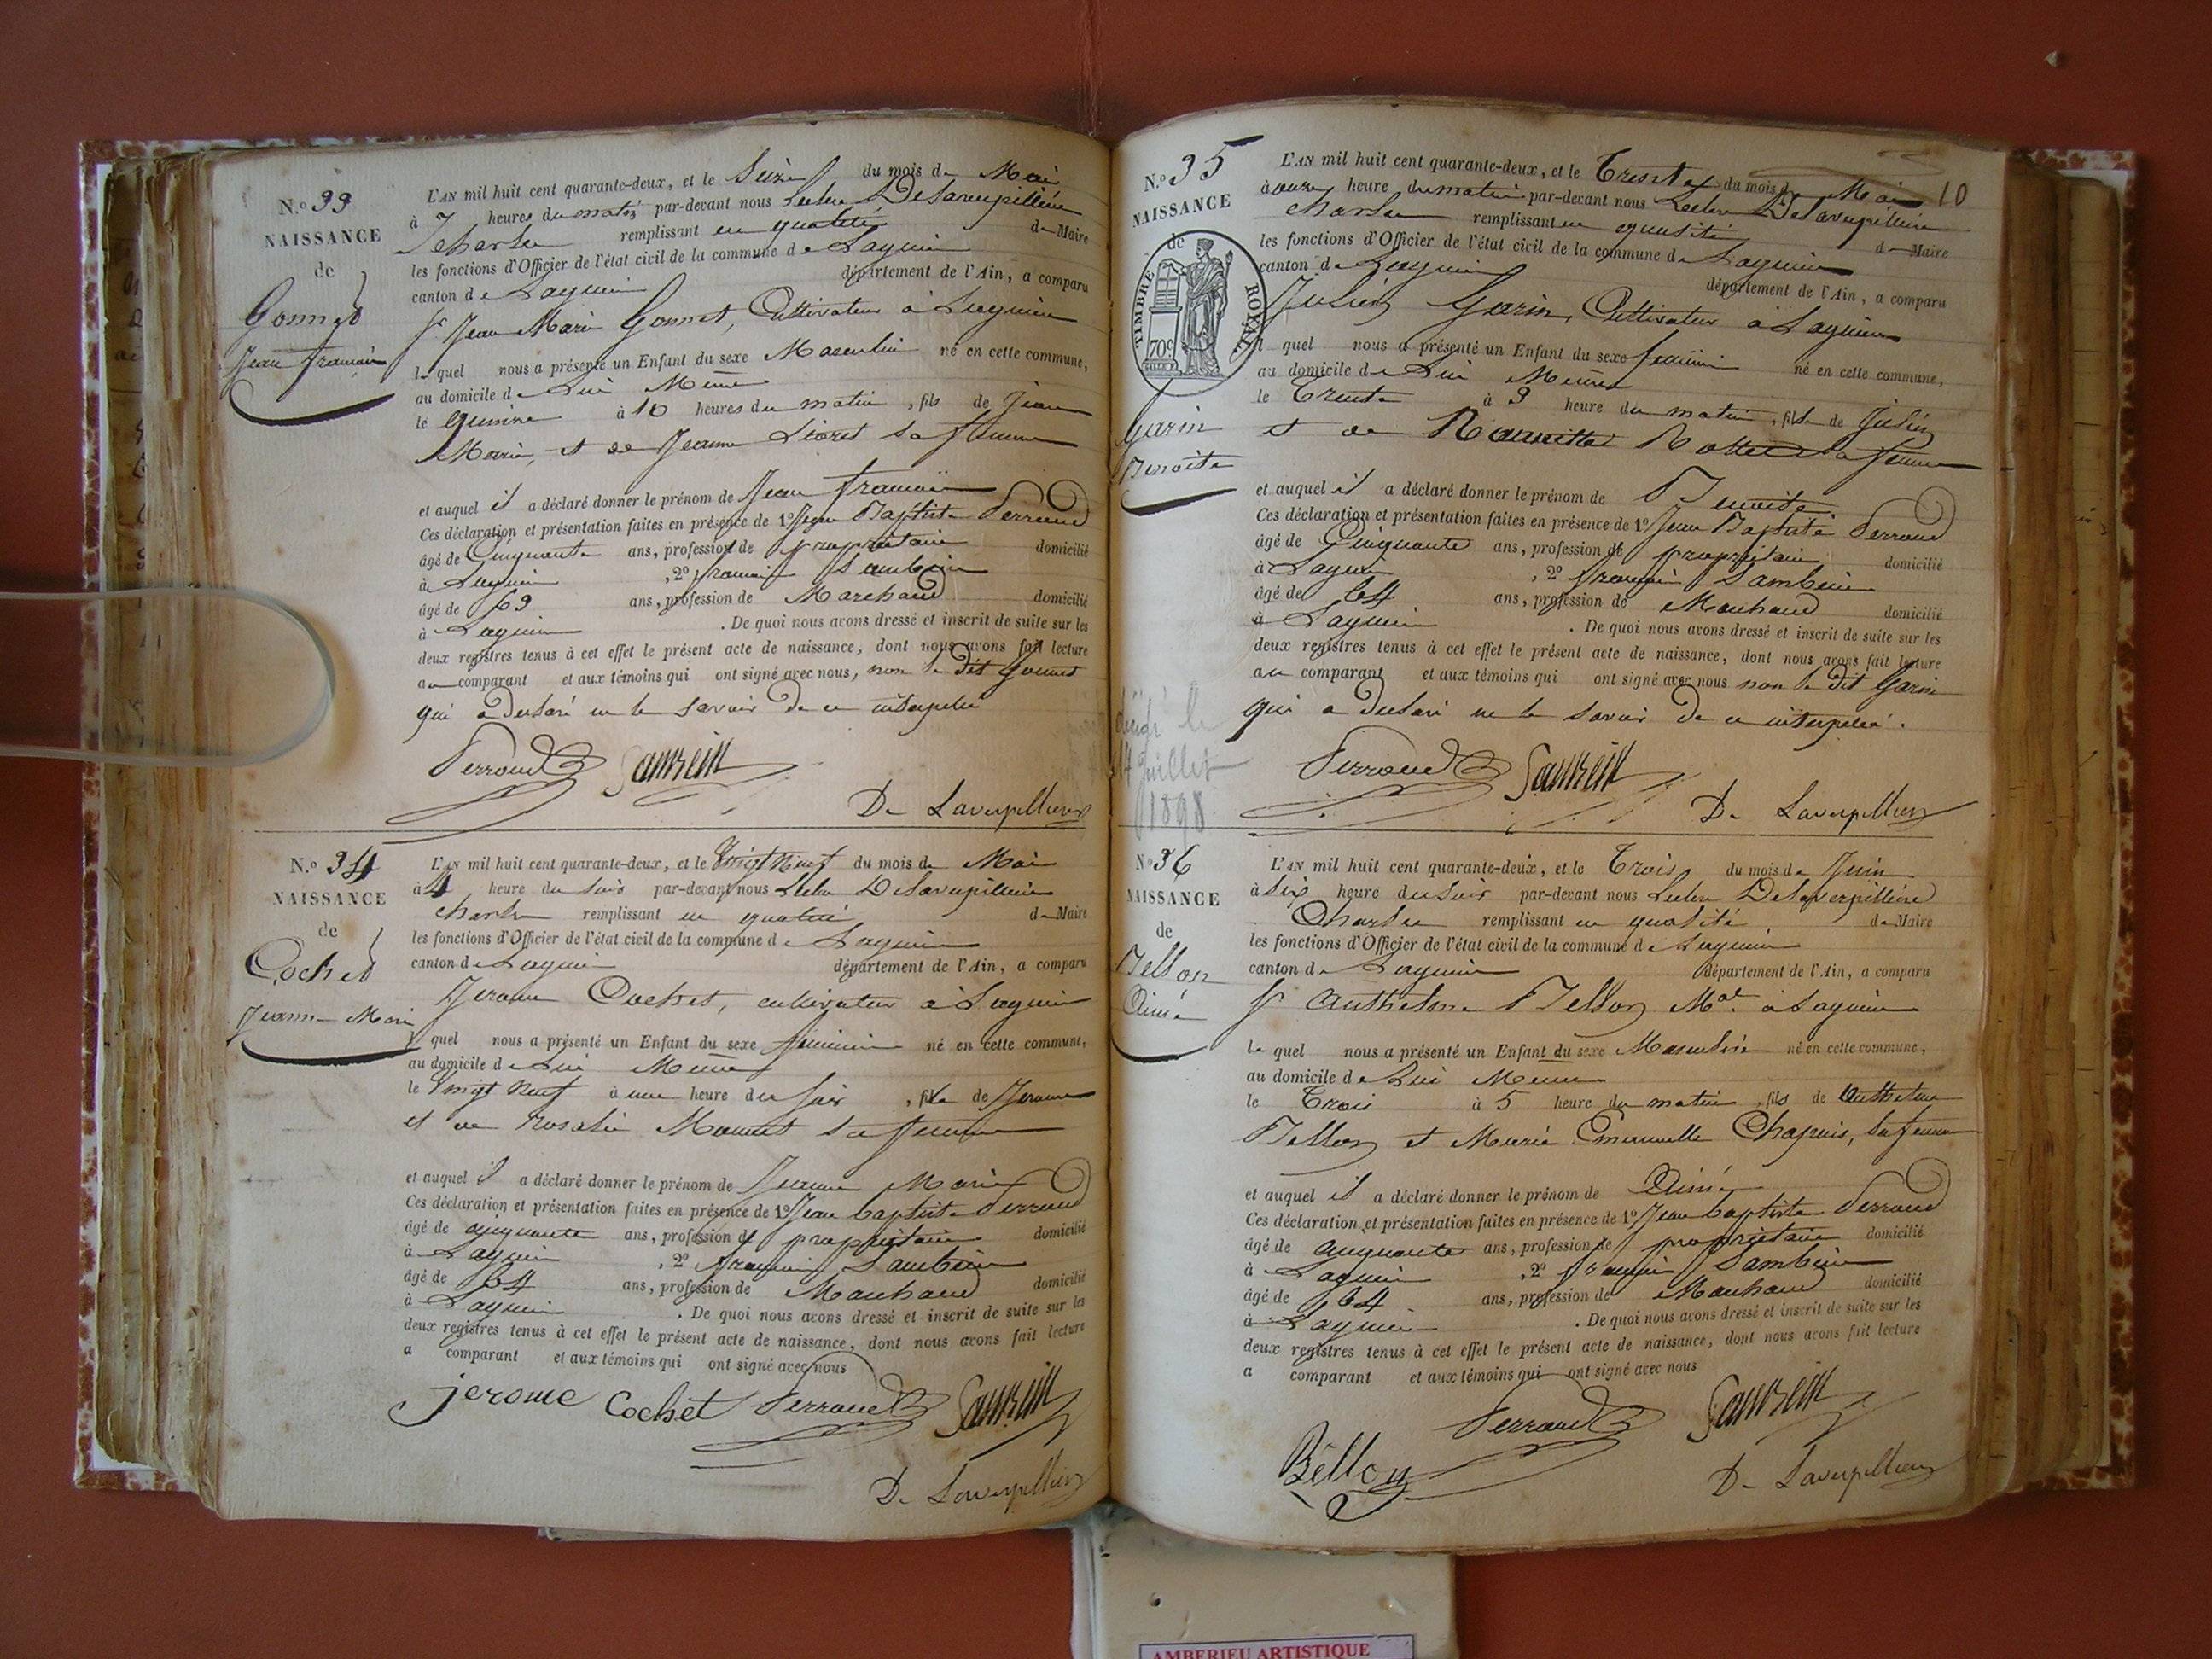 N.º 33
NAISSANCE
de
Gonnet
Jean françois
L'AN mil huit cent quarante-deux, et le Seize du mois de Mai
à 7 heures du matin par-devant nous Leclerc DeLaverpillière
Charles remplissant en qualité de Maire
les fonctions d'Officier de l'état civil de la commune de Lagnieu
canton de Lagnieu département de l'Ain, a comparu
Sr Jean Marie Gonnet, Cultivateur à Lagnieu
lequel nous a présenté un Enfant du sexe Masculin né en cette commune,
au domicile de Lui Même
le quinze à 10 heures du matin, fils de Jean
Marie, et de Jeanne sa femme
et auquel il a déclaré donner le prénom de Jean françois
Ces déclaration et présentation faites en présence de 1º Jean Baptiste Perroud
âgé de Cinquante ans, profession de propriétaire domicilié
à Lagnieu , 2º françois Sambein
âgé de 63 ans, profession de Marchand domicilié
à Lagnieu . De quoi nous avons dressé et inscrit de suite sur les
deux registres tenus à cet effet le présent acte de naissance, dont nous avons fait lecture
au comparant et aux témoins qui ont signé avec nous, non le dit Gonnet
qui a déclaré ne le savoir de ce interpellé
Perroud Sambein
De Laverpilliere
N.º 34
NAISSANCE
de
Cochet
Jeanne Marie
L'AN mil huit cent quarante-deux, et le Vingt Neuf du mois de Mai
à 4 heure du soir par-devant nous Leclerc DeLaverpillière
Charles remplissant en qualité de Maire
les fonctions d'Officier de l'état civil de la commune de Lagnieu
canton de Lagnieu département de l'Ain, a comparu
Jerome Cochet, cultivateur à Lagnieu
quel nous a présenté un Enfant du sexe féminin né en cette commune,
au domicile de Lui Même
le Vingt Neuf à une heure du soir , fille de Jerome
et de Rosalie sa femme
et auquel il a déclaré donner le prénom de Jeanne Marie
Ces déclaration et présentation faites en présence de 1º Jean baptiste Perroud
âgé de cinquante ans, profession de propriétaire domicilié
à Lagnieu , 2º françois Sambein
âgé de 64 ans, profession de Marchand domicilié
à Lagnieu . De quoi nous avons dressé et inscrit de suite sur les
deux registres tenus à cet effet le présent acte de naissance, dont nous avons fait lecture
a comparant et aux témoins qui ont signé avec nous
jerome Cochet Perroud Sambein
De Laverpilliere
10
N.º 35
NAISSANCE
de
TIMBRE ROYAL
70c
Garin
Benoite
décédé le
14 juillet
1898
L'AN mil huit cent quarante-deux, et le Trente du mois de Mai
à onze heure du matin par-devant nous Leclerc DeLaverpillière
Charles remplissant en qualité de Maire
les fonctions d'Officier de l'état civil de la commune de Lagnieu
canton de Lagnieu département de l'Ain, a comparu
Julien Garin, Cultivateur à Lagnieu
l quel nous a présenté un Enfant du sexe féminin né en cette commune,
au domicile de Lui Même
le Trente à 3 heure du matin, fille de Julien
et de sa femme
et auquel il a déclaré donner le prénom de Benoite
Ces déclaration et présentation faites en présence de 1º Jean Baptiste Perroud
âgé de Cinquante ans, profession de propriétaire domicilié
à Lagnieu , 2º françois Sambein
âgé de 64 ans, profession de Marchand domicilié
à Lagnieu . De quoi nous avons dressé et inscrit de suite sur les
deux registres tenus à cet effet le présent acte de naissance, dont nous avons fait lecture
au comparant et aux témoins qui ont signé avec nous non le dit Garin
qui a déclaré ne le savoir de ce interpellé.
Perroud Sambein
De Laverpilliere
Nº 36
NAISSANCE
de
Bellon
Aimé
L'AN mil huit cent quarante-deux, et le Trois du mois de Juin
à six heure du soir par-devant nous Leclerc DeLaverpillière
Charles remplissant en qualité de Maire
les fonctions d'Officier de l'état civil de la commune de Lagnieu
canton de Lagnieu département de l'Ain, a comparu
Sr Anthelme Bellon Md. à Lagnieu
le quel nous a présenté un Enfant du sexe Masculin né en cette commune,
au domicile de Lui Même
le Trois à 5 heure du matin, fils de Anthelme
Bellon et Marie Emanuelle Chapuis, sa femme
et auquel il a déclaré donner le prénom de Aimé
Ces déclaration et présentation faites en présence de 1º Jean baptiste Perroud
âgé de cinquante ans, profession de propriétaire domicilié
à Lagnieu , 2º françois Sambein
âgé de 64 ans, profession de Marchand domicilié
à Lagnieu . De quoi nous avons dressé et inscrit de suite sur les
deux registres tenus à cet effet le présent acte de naissance, dont nous avons fait lecture
a comparant et aux témoins qui ont signé avec nous
Perroud Sambein
Bellon
De Laverpilliere
AMBERIEU ARTISTIQUE